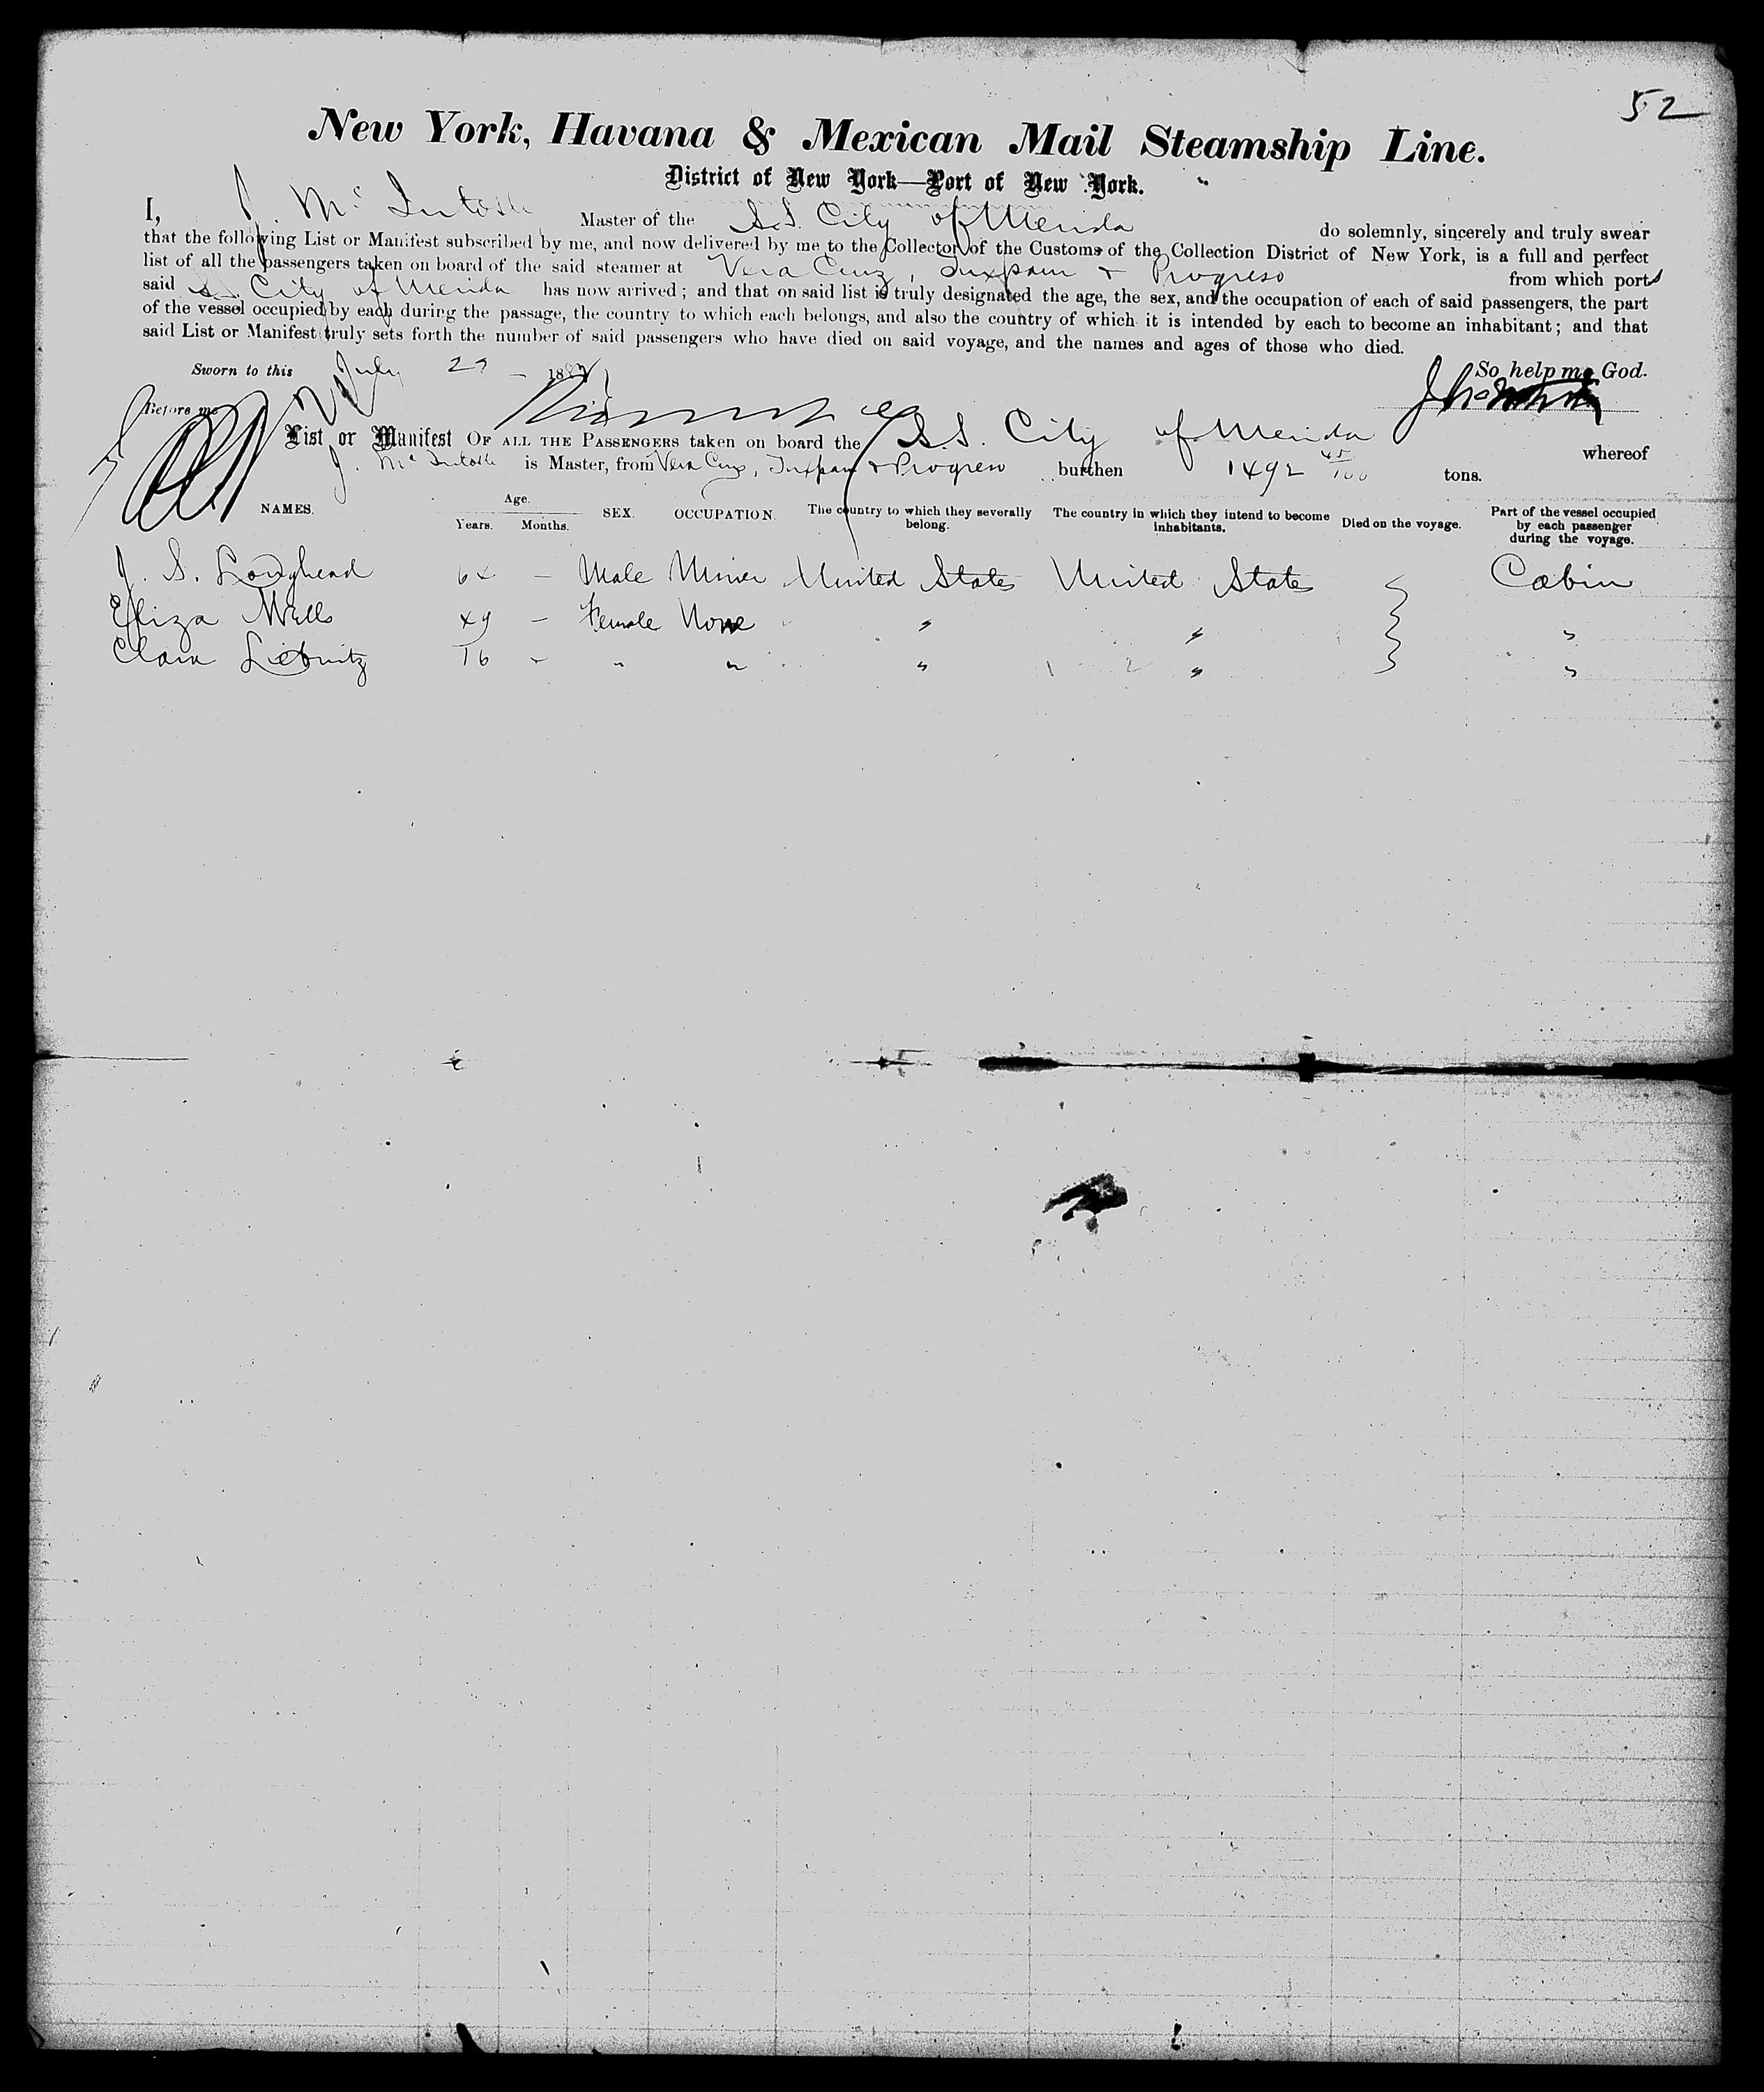 52
New York, Havana & Mexican Mail Steamship Line.
District of New York—Port of New York.
I, J. McIntosh Master of the S.S. City of Merida do solemnly, sincerely and truly swear
that the following List or Manifest subscribed by me, and now delivered by me to the Collector of the Customs of the Collection District of New York, is a full and perfect
list of all the passengers taken on board of the said steamer at Vera Cruz, Tuxpam & Progreso from which ports
said S.S. City of Merida has now arrived; and that on said list is truly designated the age, the sex, and the occupation of each of said passengers, the part
of the vessel occupied by each during the passage, the country to which each belongs, and also the country of which it is intended by each to become an inhabitant; and that
said List or Manifest truly sets forth the number of said passengers who have died on said voyage, and the names and ages of those who died.
Sworn to this July 188 So help me God.
Before me
List or Manifest OF ALL THE PASSENGERS taken on board the S.S. City of Merida whereof
J. McIntosh is Master, from Vera Cruz, Tuxpam & Progreso burthen 1492 45/100 tons.
NAMES. Age. Years. Months. SEX. OCCUPATION. The country to which they severally belong. The country in which they intend to become inhabitants. Died on the voyage. Part of the vessel occupied by each passenger during the voyage.
J. S. Loughead 64 – Male Miner United States United States Cabin
Eliza Wells 49 – Female None " " "
Clara 16 – " " " " "